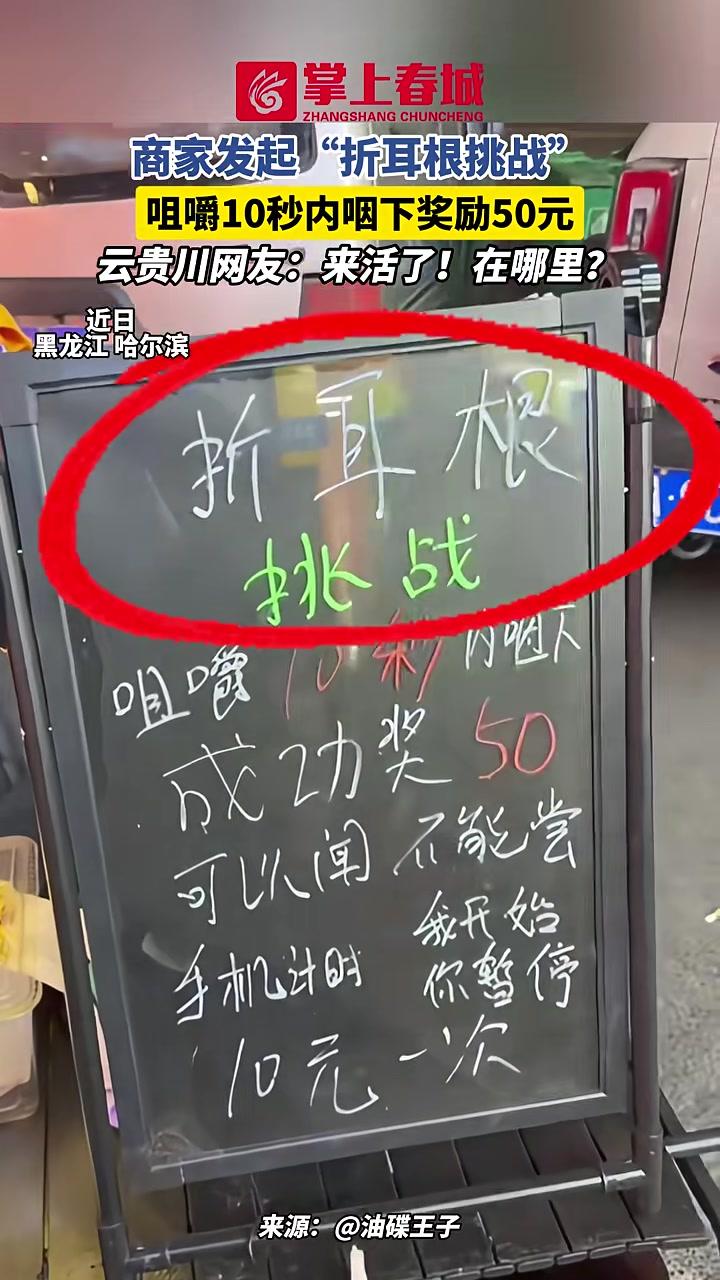 掌上春城
ZHANGSHANG CHUNCHENG
商家发起“折耳根挑战”
咀嚼10秒内咽下奖励50元
云贵川网友：来活了！在哪里？
近日
黑龙江 哈尔滨
折耳根
挑战
咀嚼10秒内咽下
成功奖50
可以闻 不能尝
手机计时 我开始
你暂停
10元一次
来源：@油碟王子